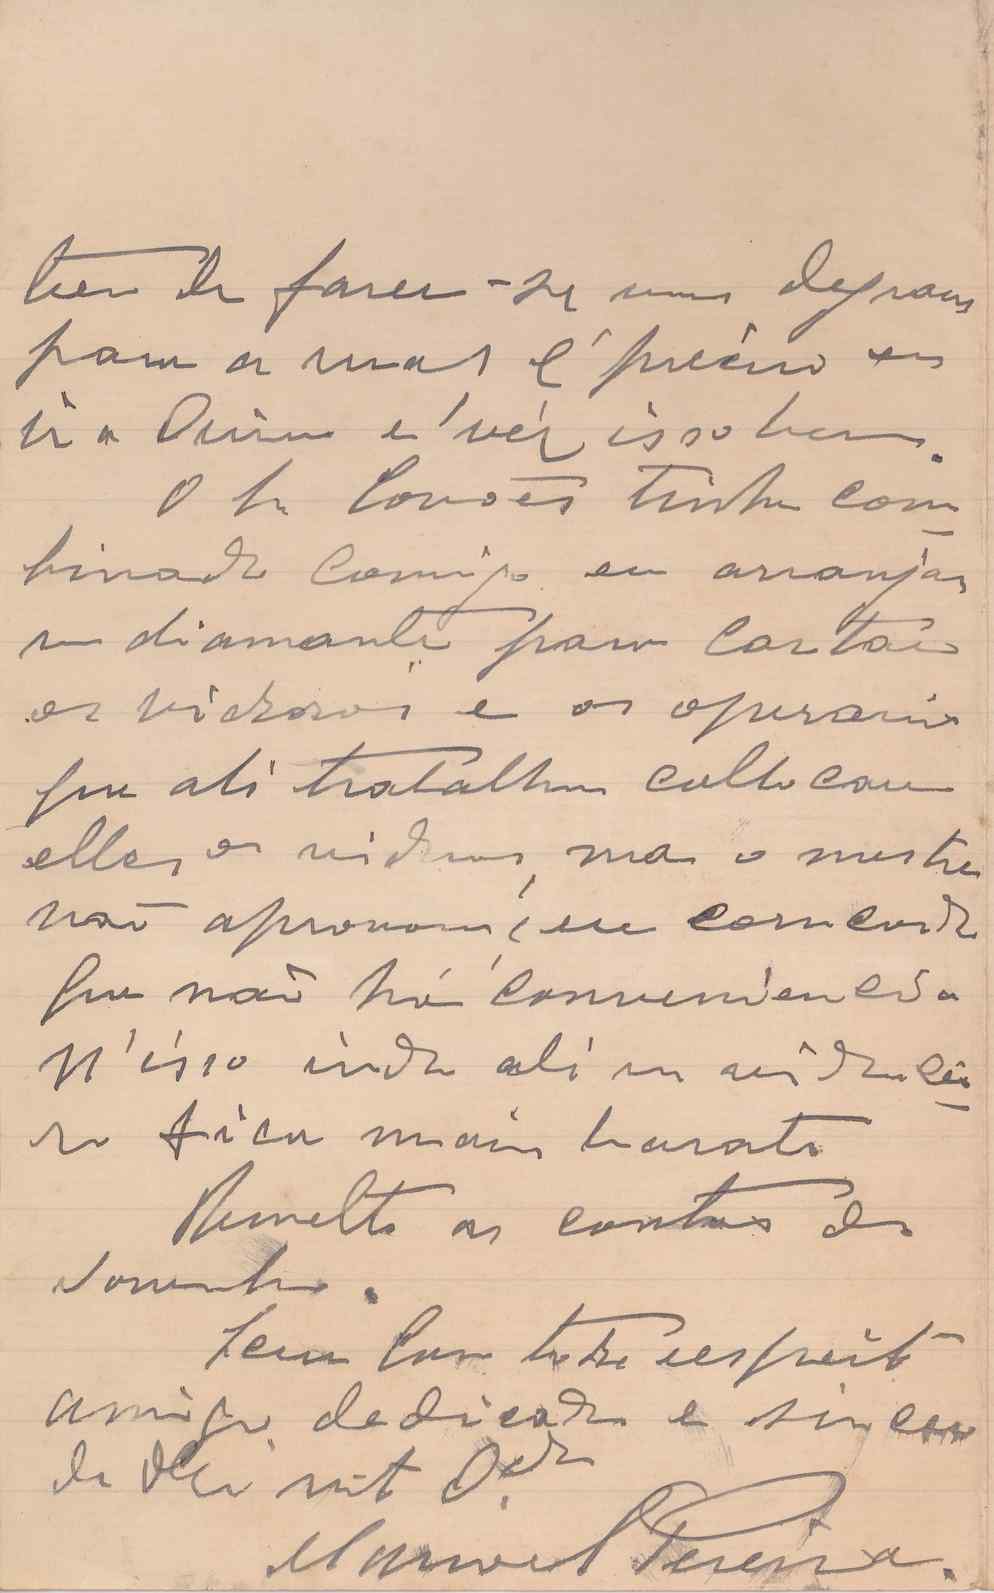 tem de fazer-se uns degraus
para a rua e' preciso eu
ir a Ovar e' vêr isso bem.
O Snr. Lourões tinha com
binado comigo eu arranjar
um diamante para cartar
os vidros e os operarios
que ali trabalham collocam
elles os vidros, mas o mestre
não aprovou, eu concordo
que não há conveniencia
N'isso indo ali um vidracei
ro fica mais barato
Remetto as contas de
Novembro.
Seu com todo respeito
amigo dedicado e sincero
de V. Ex.cia mt. Obdo
Manoel Pereira.